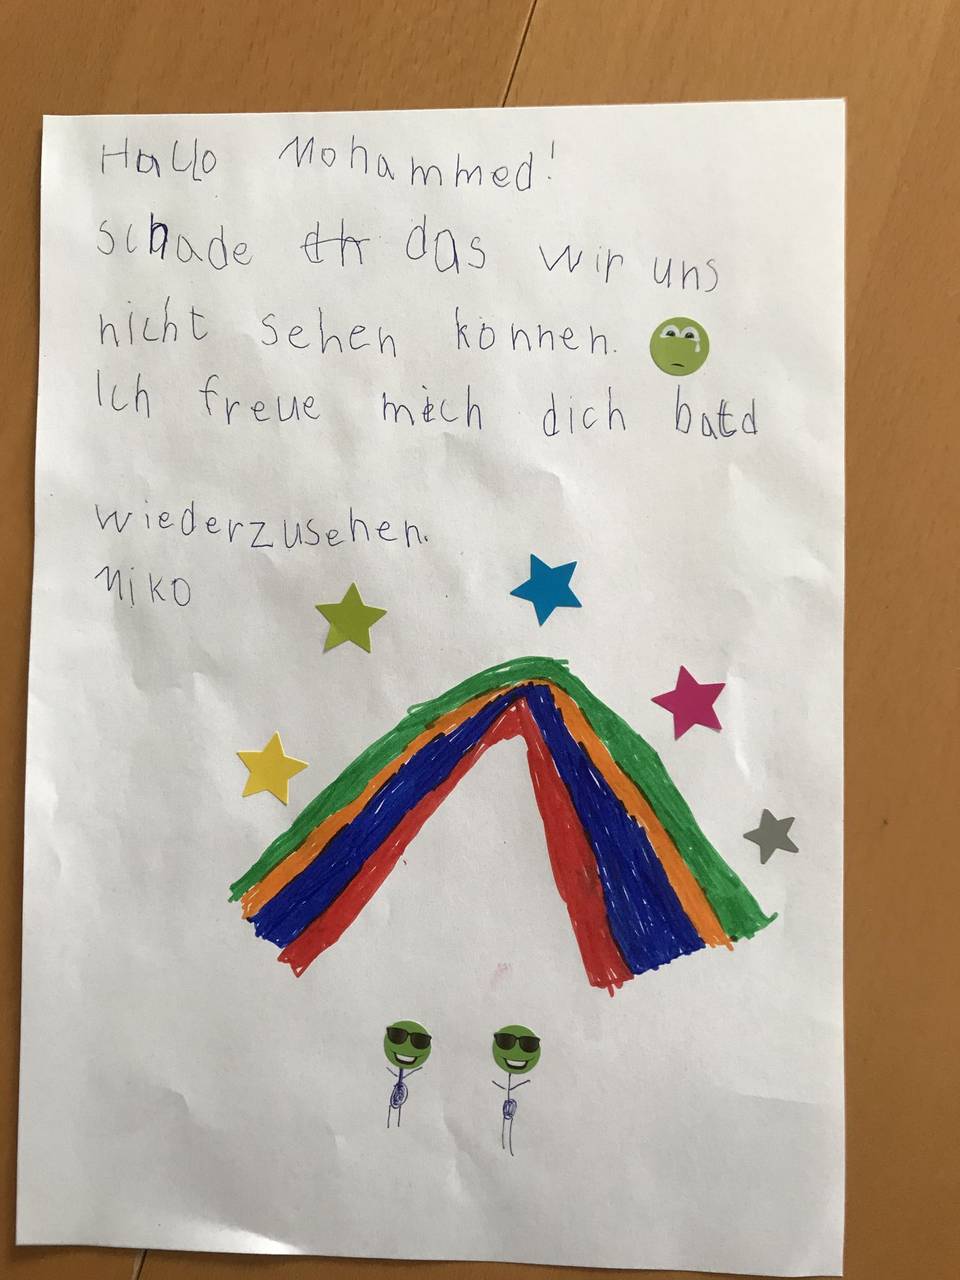 Hallo Mohammed!
schade das wir uns
nicht sehen können.
Ich freue mich dich bald
wiederzusehen.
Niko